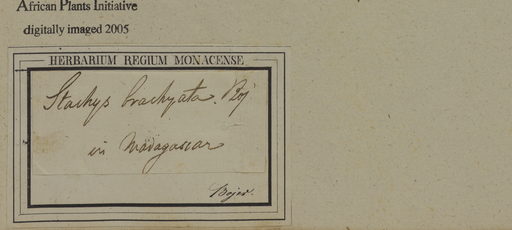 African Plants Initiative
digitally imaged 2005
HERBARIUM REGIUM MONACENSE
Stachys brachyata. Boj
in Madagascar
Bojer.